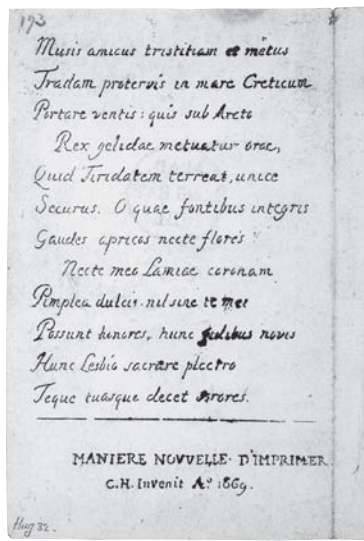 193
Musis amicus tristitiam et metus
Tradam protervis in mare Creticum
Portare ventis: quis sub Arcto
Rex gelidae metuatur orae,
Quid Tiridatem terreat, unice
Securus. O quae fontibus integris
Gaudes apricos necte flores
Necte meo Lamiae coronam
Pimplea dulcis. nil sine te mei
Possunt honores, hunc fidibus novis
Hunc Lesbio sacrare plectro
Teque tuasque decet sorores.
MANIERE NOVVELLE D'IMPRIMER
C.H. Invenit Aº 1669.
Hug 32.